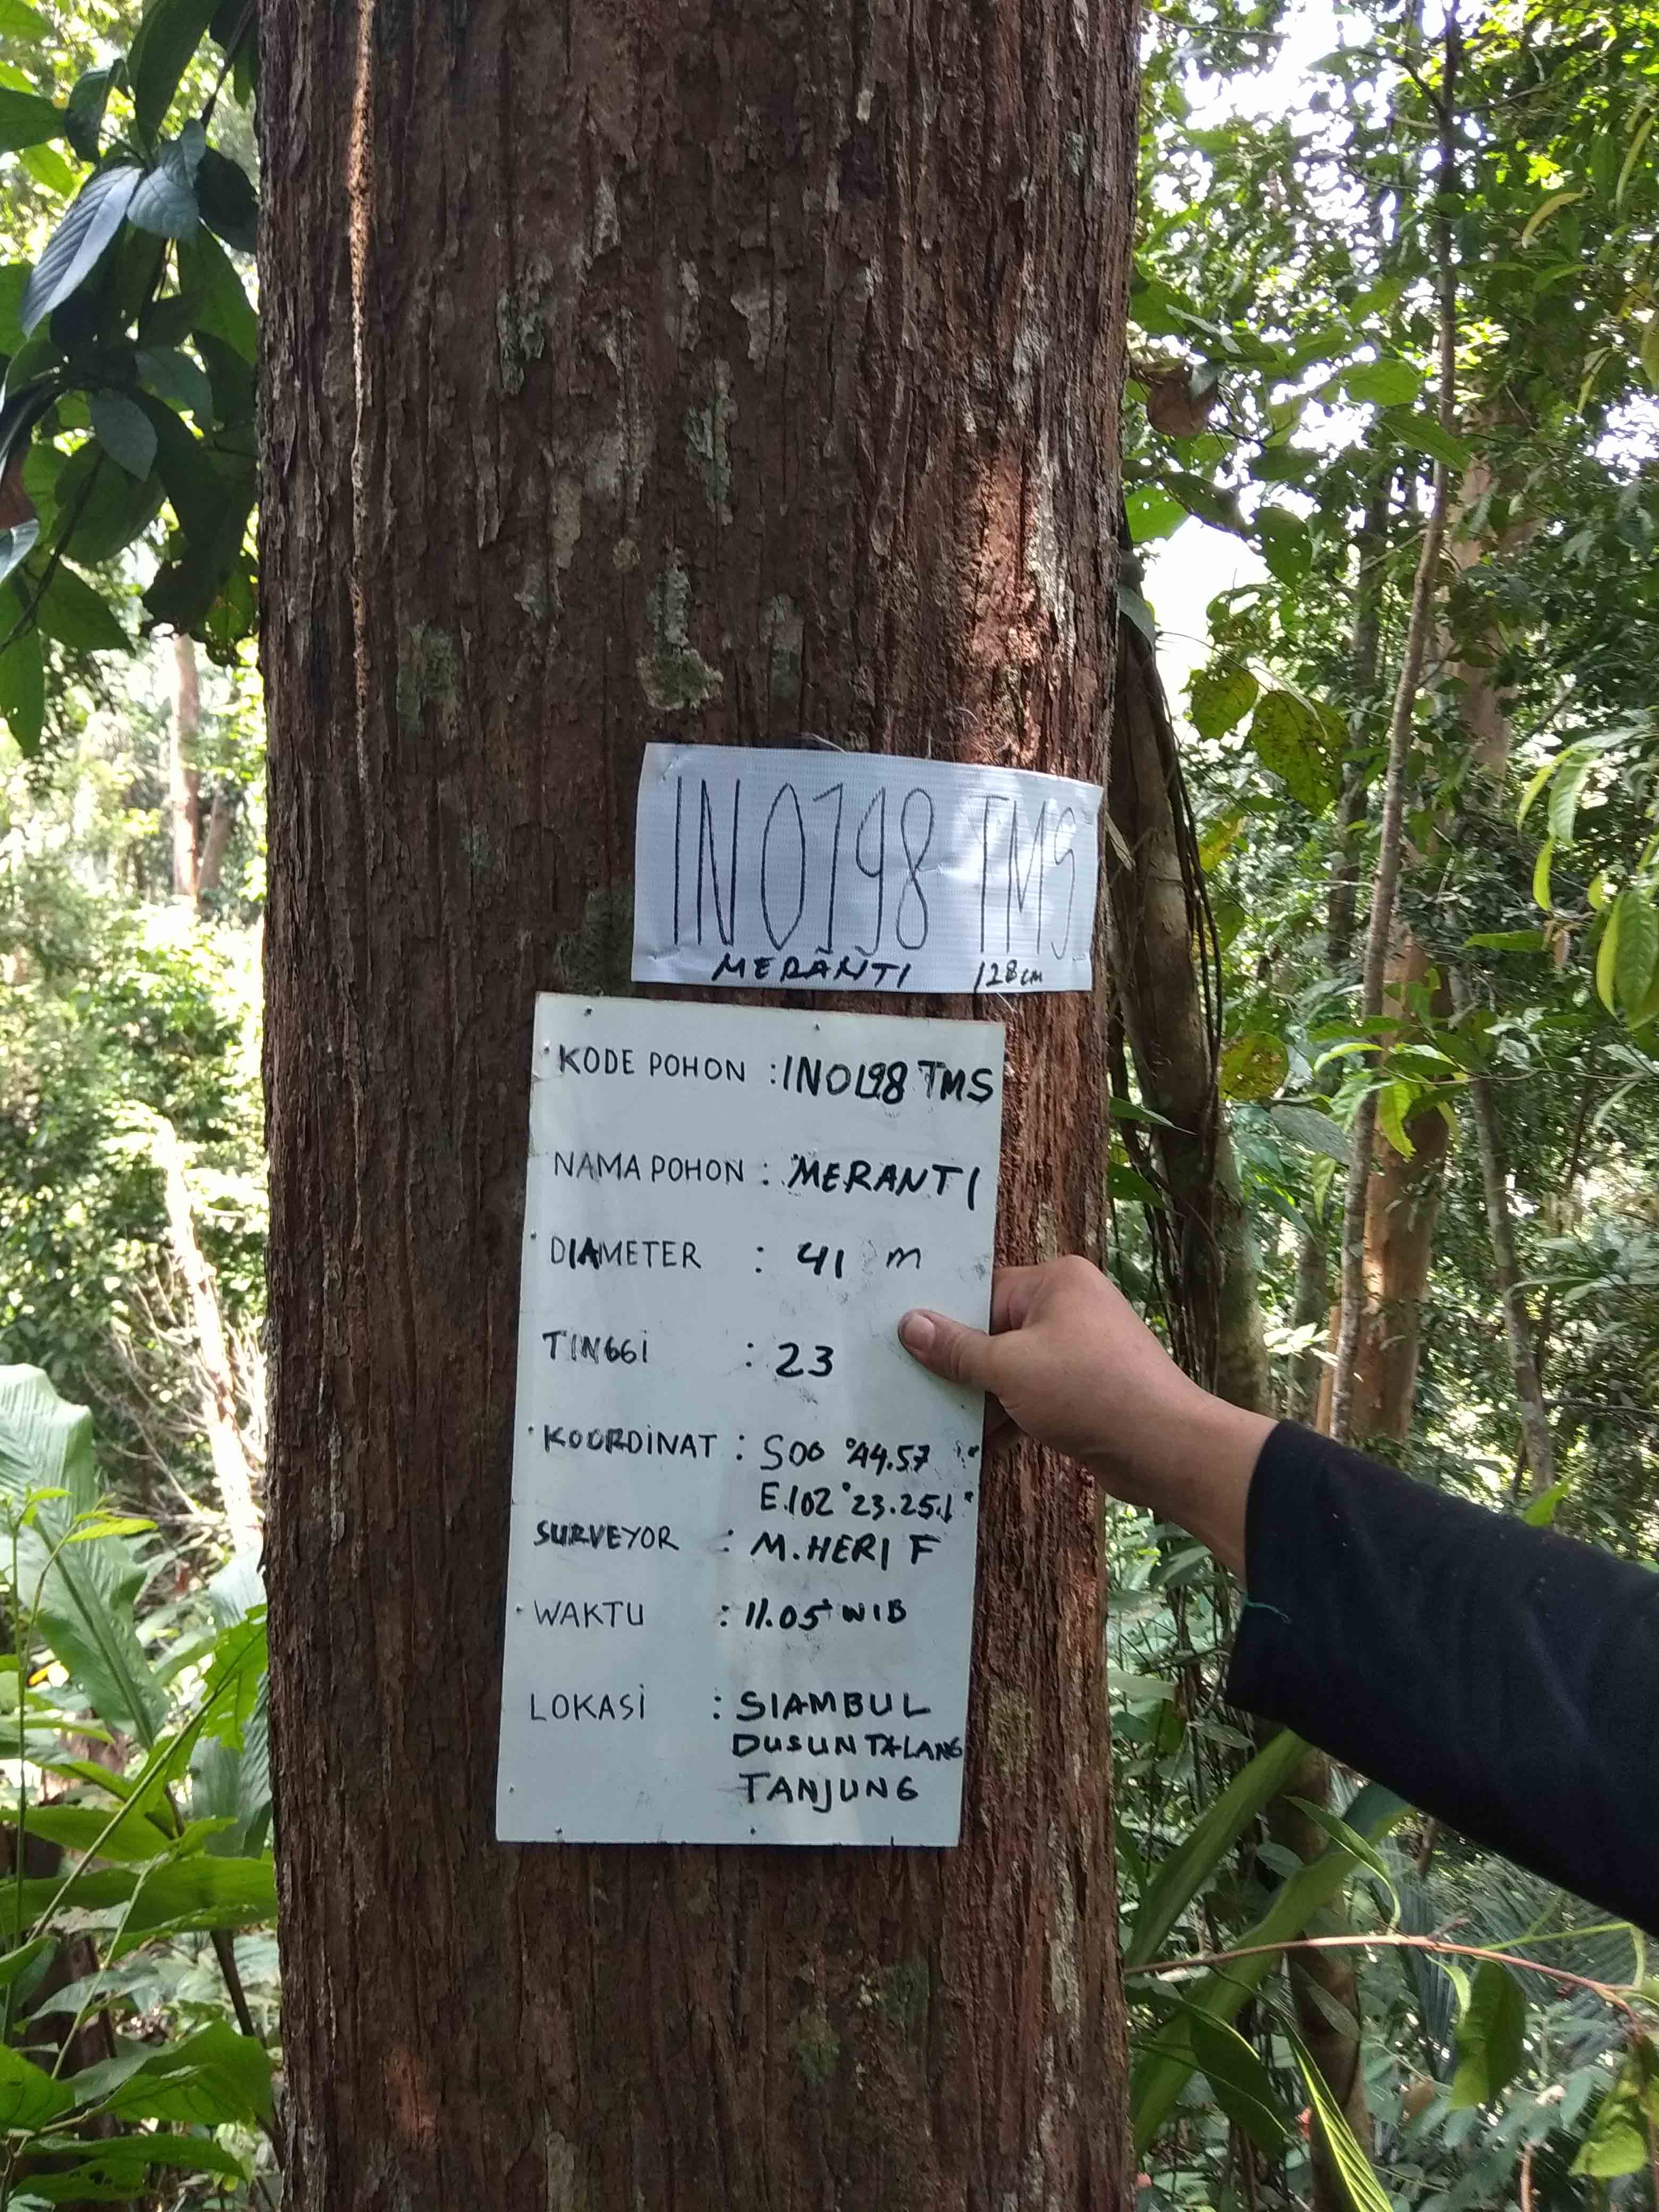 INO198 TMS
MERANTI 128 cm
KODE POHON : INO198 TMS
NAMA POHON : MERANTI
DIAMETER : 41 m
TINGGI : 23
KOORDINAT : S00 °44.57
E.102°23.25.1"
SURVEYOR : M.HERI F
WAKTU : 11.05 WIB
LOKASI : SIAMBUL
DUSUN TALANG
TANJUNG